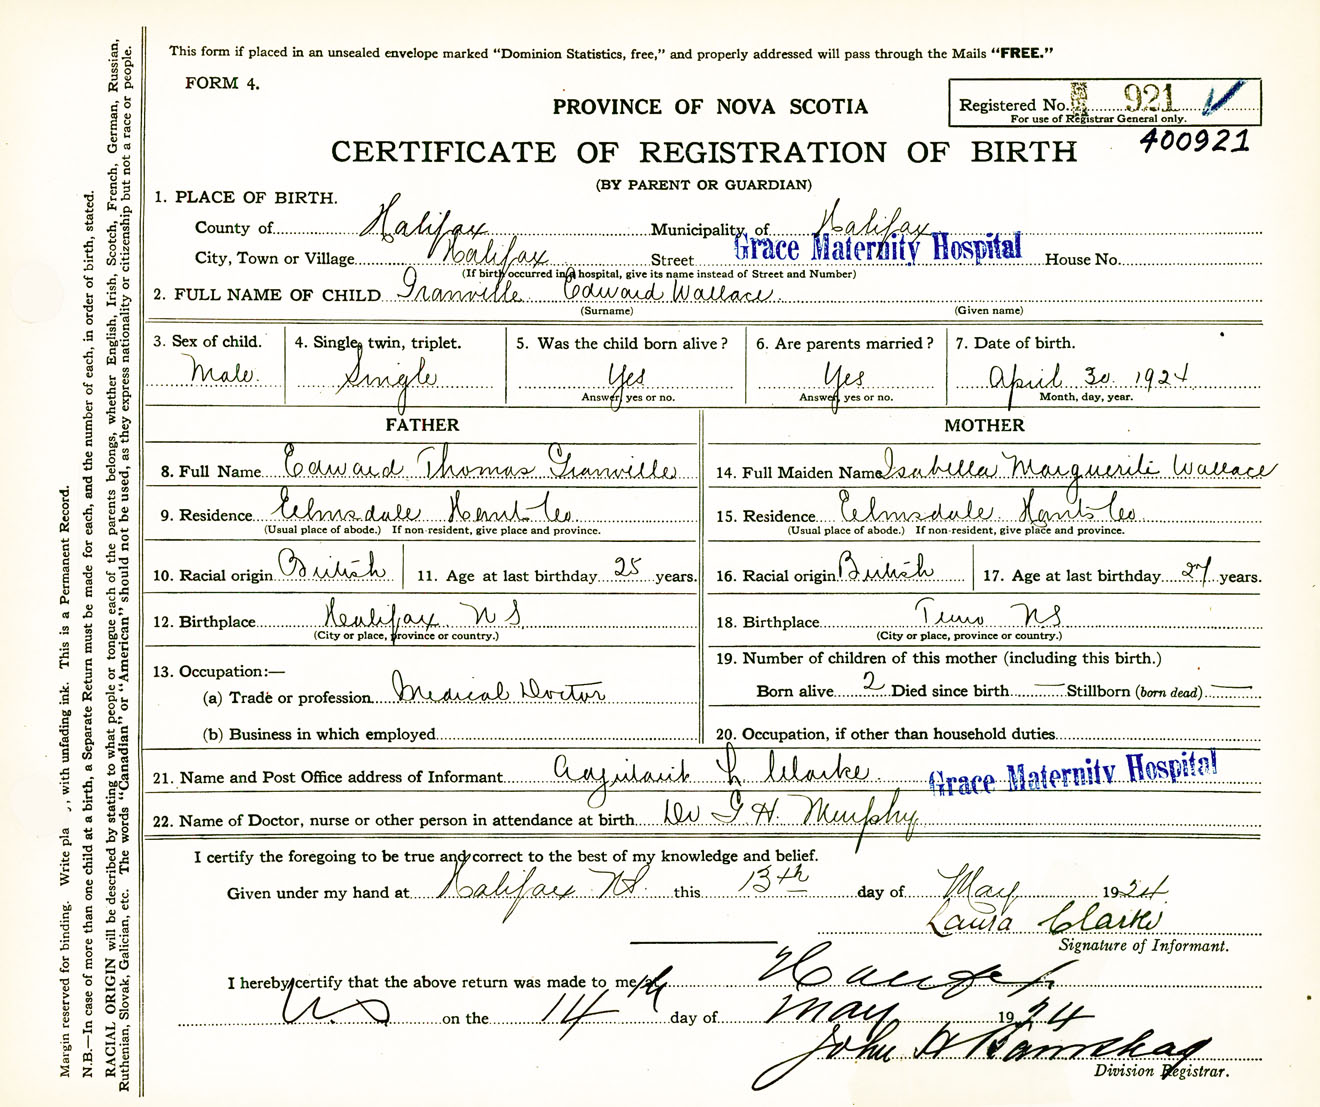 This form if placed in an unsealed envelope marked "Dominion Statistics, free," and properly addressed will pass through the Mails "FREE."
FORM 4.
PROVINCE OF NOVA SCOTIA
Registered No. 921
For use of Registrar General only.
400921
CERTIFICATE OF REGISTRATION OF BIRTH
(BY PARENT OR GUARDIAN)
1. PLACE OF BIRTH.
County of Halifax Municipality of Halifax
City, Town or Village Halifax Street Grace Maternity Hospital House No.
(If birth occurred in a hospital, give its name instead of Street and Number)
2. FULL NAME OF CHILD Granville Edward Wallace.
(Surname) (Given name)
3. Sex of child. 4. Single, twin, triplet. 5. Was the child born alive? 6. Are parents married? 7. Date of birth.
Male. Single Yes Yes April 30 1924
Answer yes or no. Answer yes or no. Month, day, year.
FATHER MOTHER
8. Full Name Edward Thomas Granville 14. Full Maiden Name Isabella Marguerite Wallace
9. Residence Elmsdale Hants Co 15. Residence Elmsdale Hants Co
(Usual place of abode.) If non-resident, give place and province. (Usual place of abode.) If non-resident, give place and province.
10. Racial origin British 11. Age at last birthday 25 years. 16. Racial origin British 17. Age at last birthday 27 years.
12. Birthplace Halifax N S 18. Birthplace Truro N S
(City or place, province or country.) (City or place, province or country.)
13. Occupation:— 19. Number of children of this mother (including this birth.)
(a) Trade or profession Medical Doctor Born alive 2 Died since birth — Stillborn (born dead) —
(b) Business in which employed 20. Occupation, if other than household duties
21. Name and Post Office address of Informant Adjutant L Clarke. Grace Maternity Hospital
22. Name of Doctor, nurse or other person in attendance at birth Dr G H. Murphy
I certify the foregoing to be true and correct to the best of my knowledge and belief.
Given under my hand at Halifax NS. this 13th day of May 1924
Laura Clarke
Signature of Informant.
I hereby certify that the above return was made to me at Halifax
N.S on the 14th day of May 1924
John A
Division Registrar.
Margin reserved for binding. Write pla , with unfading ink. This is a Permanent Record.
N.B.—In case of more than one child at a birth, a Separate Return must be made for each, and the number of each, in order of birth, stated.
RACIAL ORIGIN will be described by stating to what people or tongue each of the parents belongs, whether English, Irish, Scotch, French, German, Russian,
Ruthenian, Slovak, Galician, etc. The words "Canadian" or "American" should not be used, as they express nationality or citizenship but not a race or people.